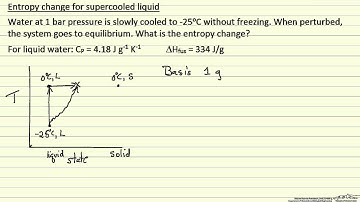 Entropy change for supercooled liquid
Water at 1 bar pressure is slowly cooled to -25°C without freezing. When perturbed,
the system goes to equilibrium. What is the entropy change?
For liquid water: CP = 4.18 J g-1 K-1 ΔHfus = 334 J/g
Basis 1 g
0°C, L
0°C, S
T
-25°C, L
liquid
state
solid